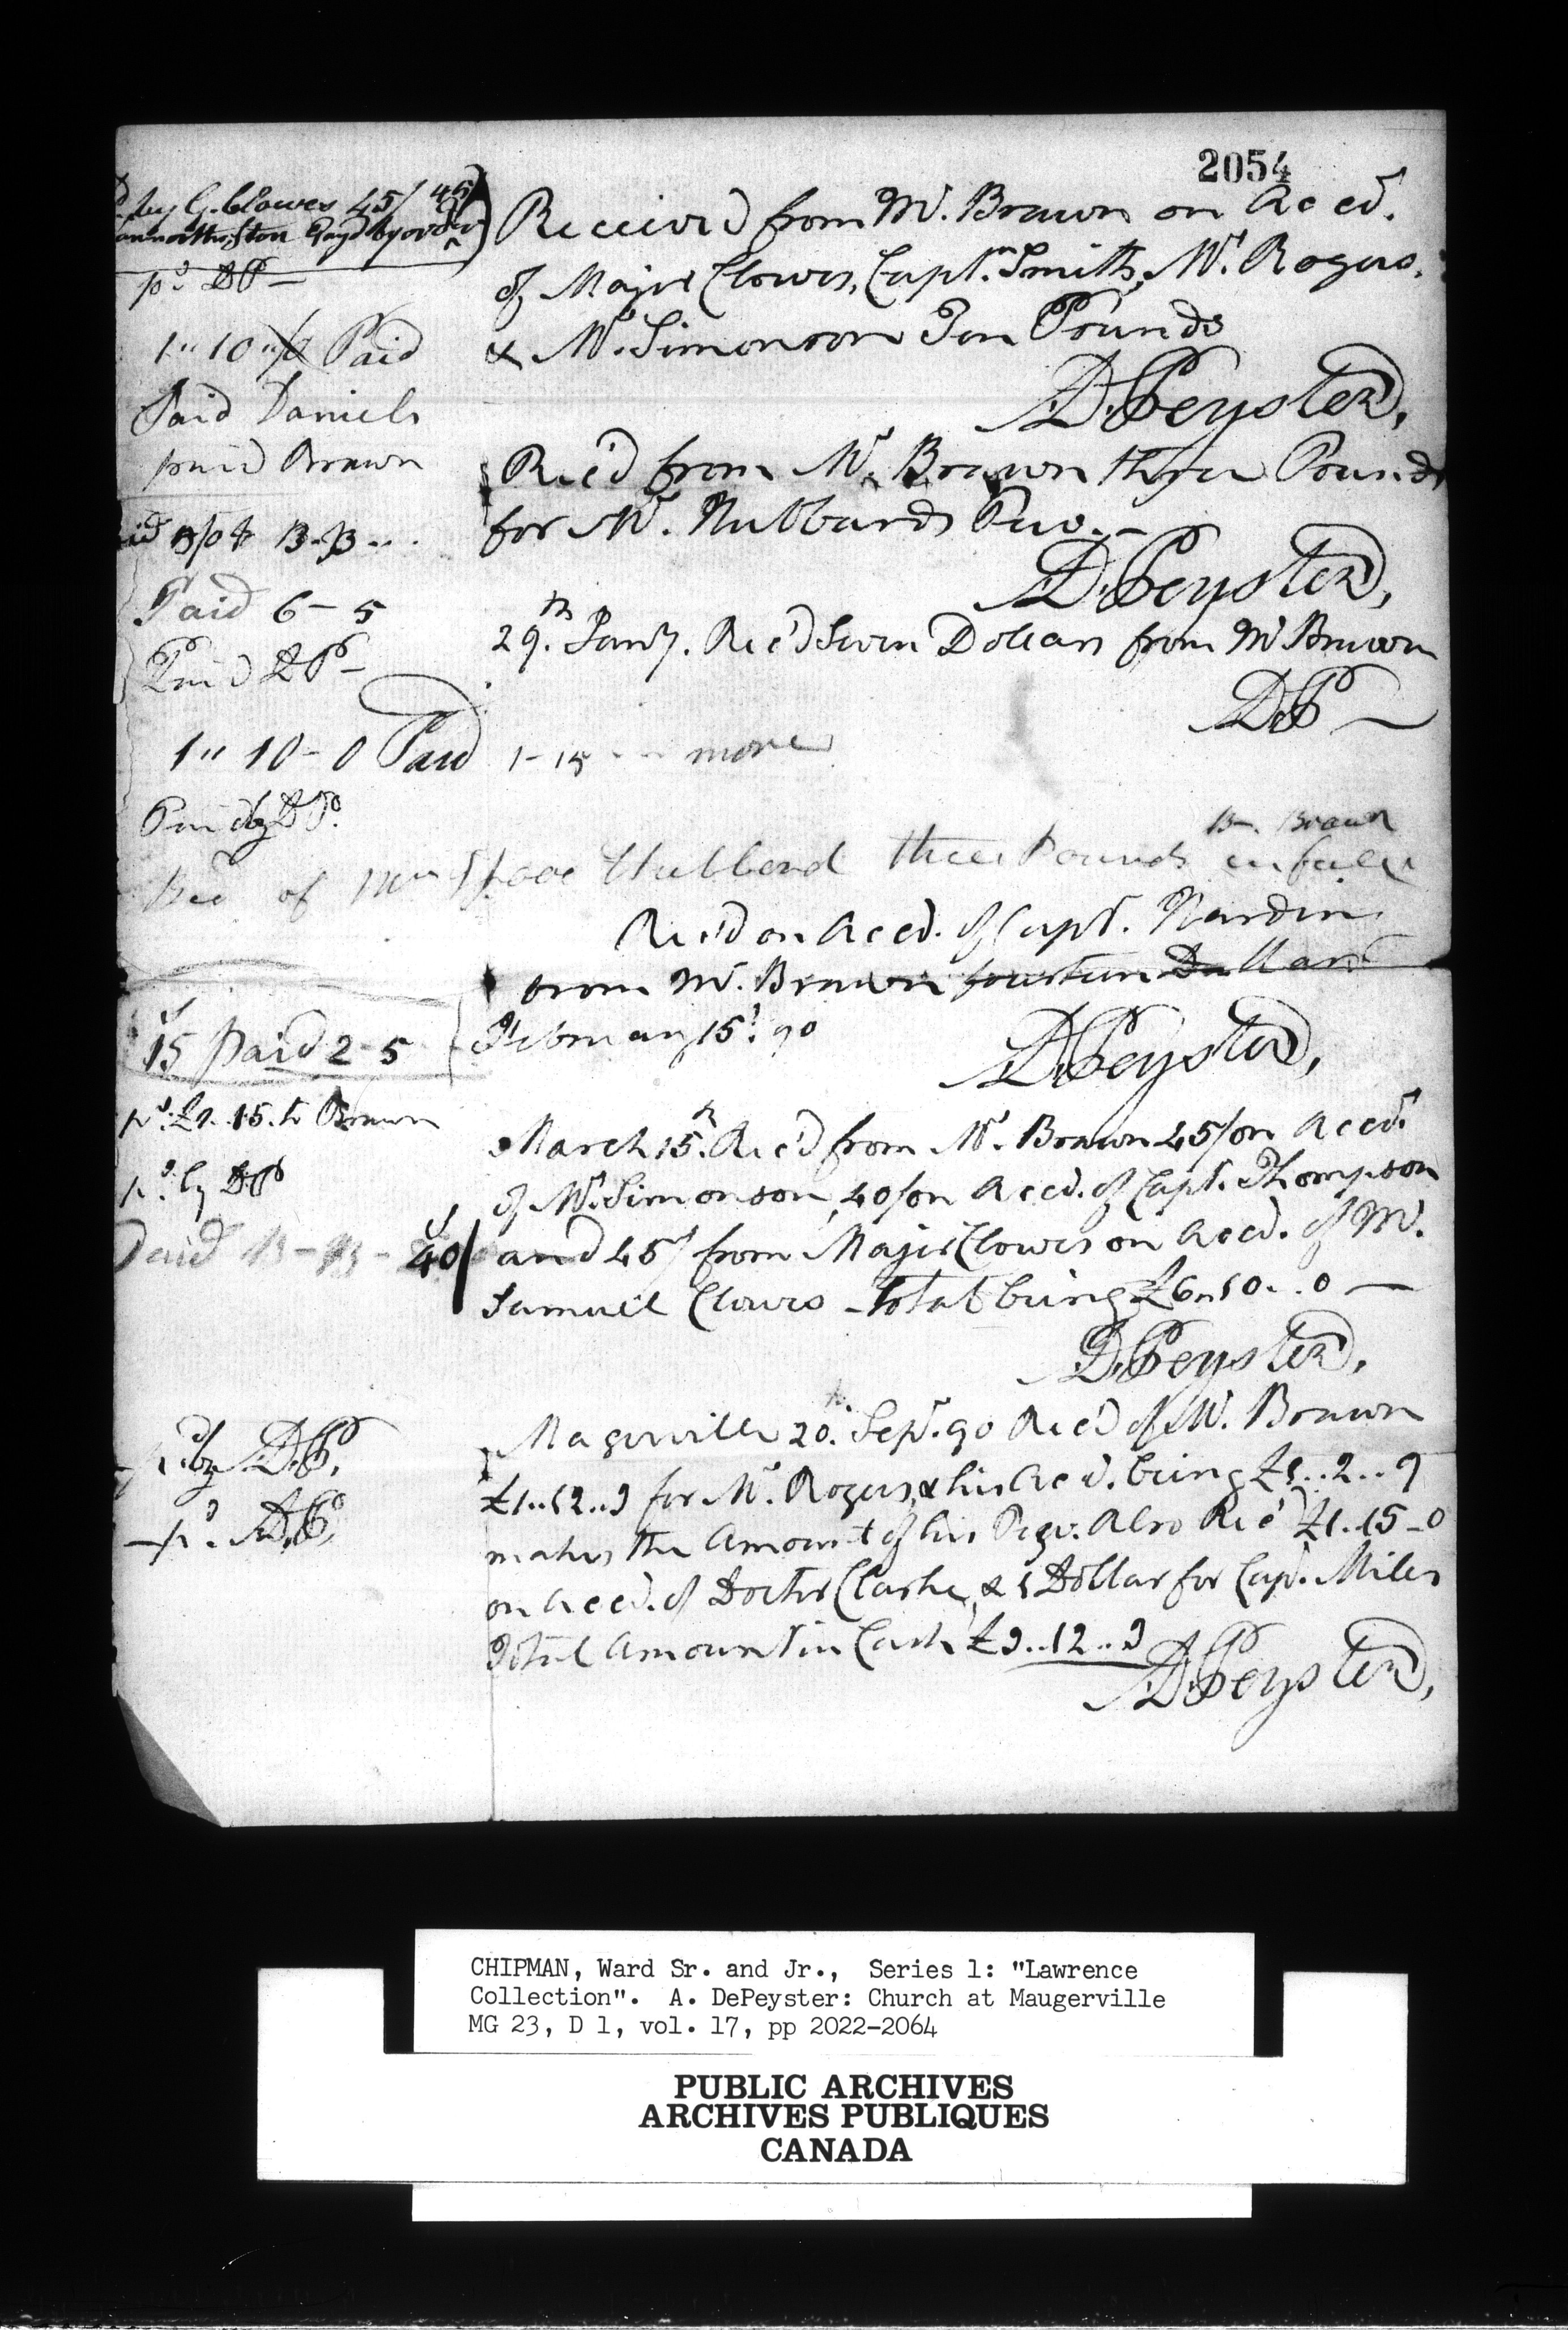 2054
by G. Clowes 45/ 45/
payd by order
pd. DP —
1" 10 "0 Paid
Paid Daniels
paid Brawn
Paid 6 - 5
Paid DP —
1" 10 - 0 Paid
Paid by DP.
Received from Mr. Brawn on Accd.
of Major Clowes, Captn. Smith, Mr. Rogers,
& Mr. Simonson Ten Pounds
A. DPeyster,
Rec'd from Mr. Brawn three Pounds
for Mr. Hubbards Pew. —
A. DPeyster,
29th. Jany. Rec'd Seven Dollars from Mr Brawn
DP —
1 - 15 - - more
B. Brawn
Recd of Mr Hubbard three Pounds in full
Rec'd on Accd. of Capt. Hardin
from Mr. Brawn fourteen Dollars
February 15t. 90
A. DPeyster,
15 paid 2 - 5
pd. £1..15. to Brawn
pd. by DP
Paid
40/
March 15th. Rec'd from Mr. Brawn 45/ on Accd.
of Mr. Simonson, 40/ on Accd. of Capt. Thompson
and 45/ from Major Clowes on Accd. of Mr.
Samuel Clowes - total being £6..10...0 —
A. DPeyster,
pd. by DP.
pd. DP,
Magerville 20th. Sepr. 90 Rec'd of Mr. Brawn
£1..12..9 for Mr. Rogers, & his Accd. being £1..2..9
makes the Amount of his Pew. Also Rec'd £1..15 - 0
on Accd. of Doctor Clarke, & 1 Dollar for Capt. Miles
Total Amount in Cash £3..12..9
A. DPeyster,
CHIPMAN, Ward Sr. and Jr., Series 1: "Lawrence
Collection". A. DePeyster: Church at Maugerville
MG 23, D 1, vol. 17, pp 2022-2064
PUBLIC ARCHIVES
ARCHIVES PUBLIQUES
CANADA